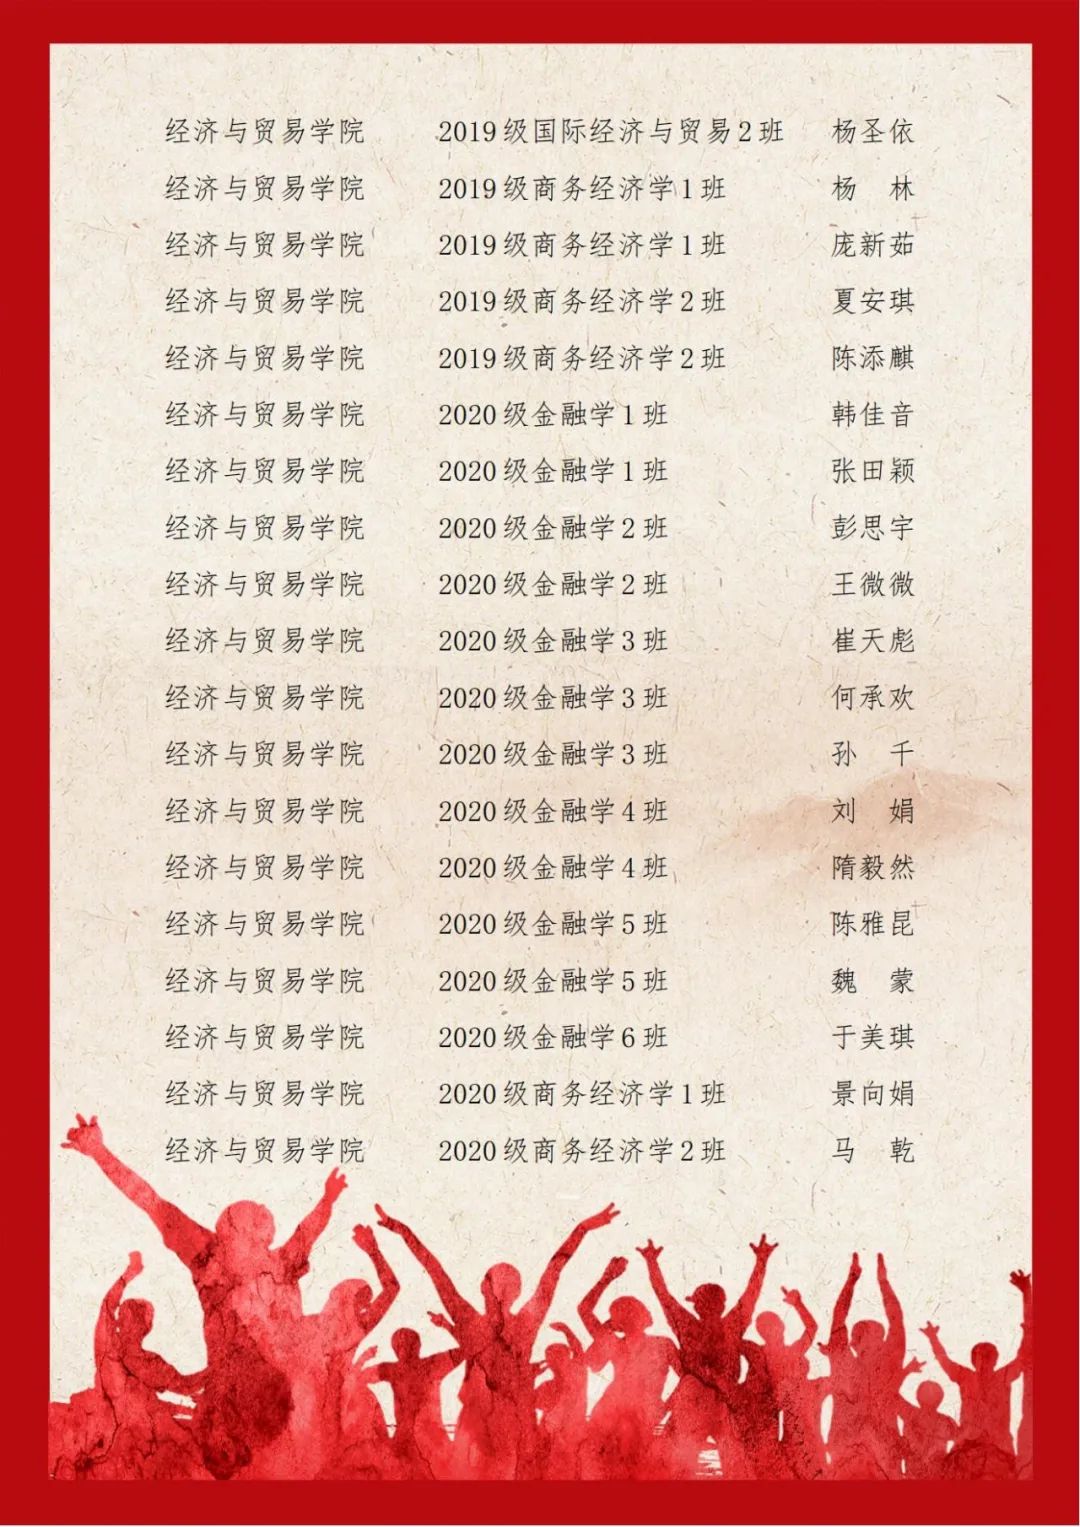 经济与贸易学院 2019级国际经济与贸易2班 杨圣依
经济与贸易学院 2019级商务经济学1班 杨　林
经济与贸易学院 2019级商务经济学1班 庞新茹
经济与贸易学院 2019级商务经济学2班 夏安琪
经济与贸易学院 2019级商务经济学2班 陈添麒
经济与贸易学院 2020级金融学1班 韩佳音
经济与贸易学院 2020级金融学1班 张田颖
经济与贸易学院 2020级金融学2班 彭思宇
经济与贸易学院 2020级金融学2班 王微微
经济与贸易学院 2020级金融学3班 崔天彪
经济与贸易学院 2020级金融学3班 何承欢
经济与贸易学院 2020级金融学3班 孙　千
经济与贸易学院 2020级金融学4班 刘　娟
经济与贸易学院 2020级金融学4班 隋毅然
经济与贸易学院 2020级金融学5班 陈雅昆
经济与贸易学院 2020级金融学5班 魏　蒙
经济与贸易学院 2020级金融学6班 于美琪
经济与贸易学院 2020级商务经济学1班 景向娟
经济与贸易学院 2020级商务经济学2班 马　乾